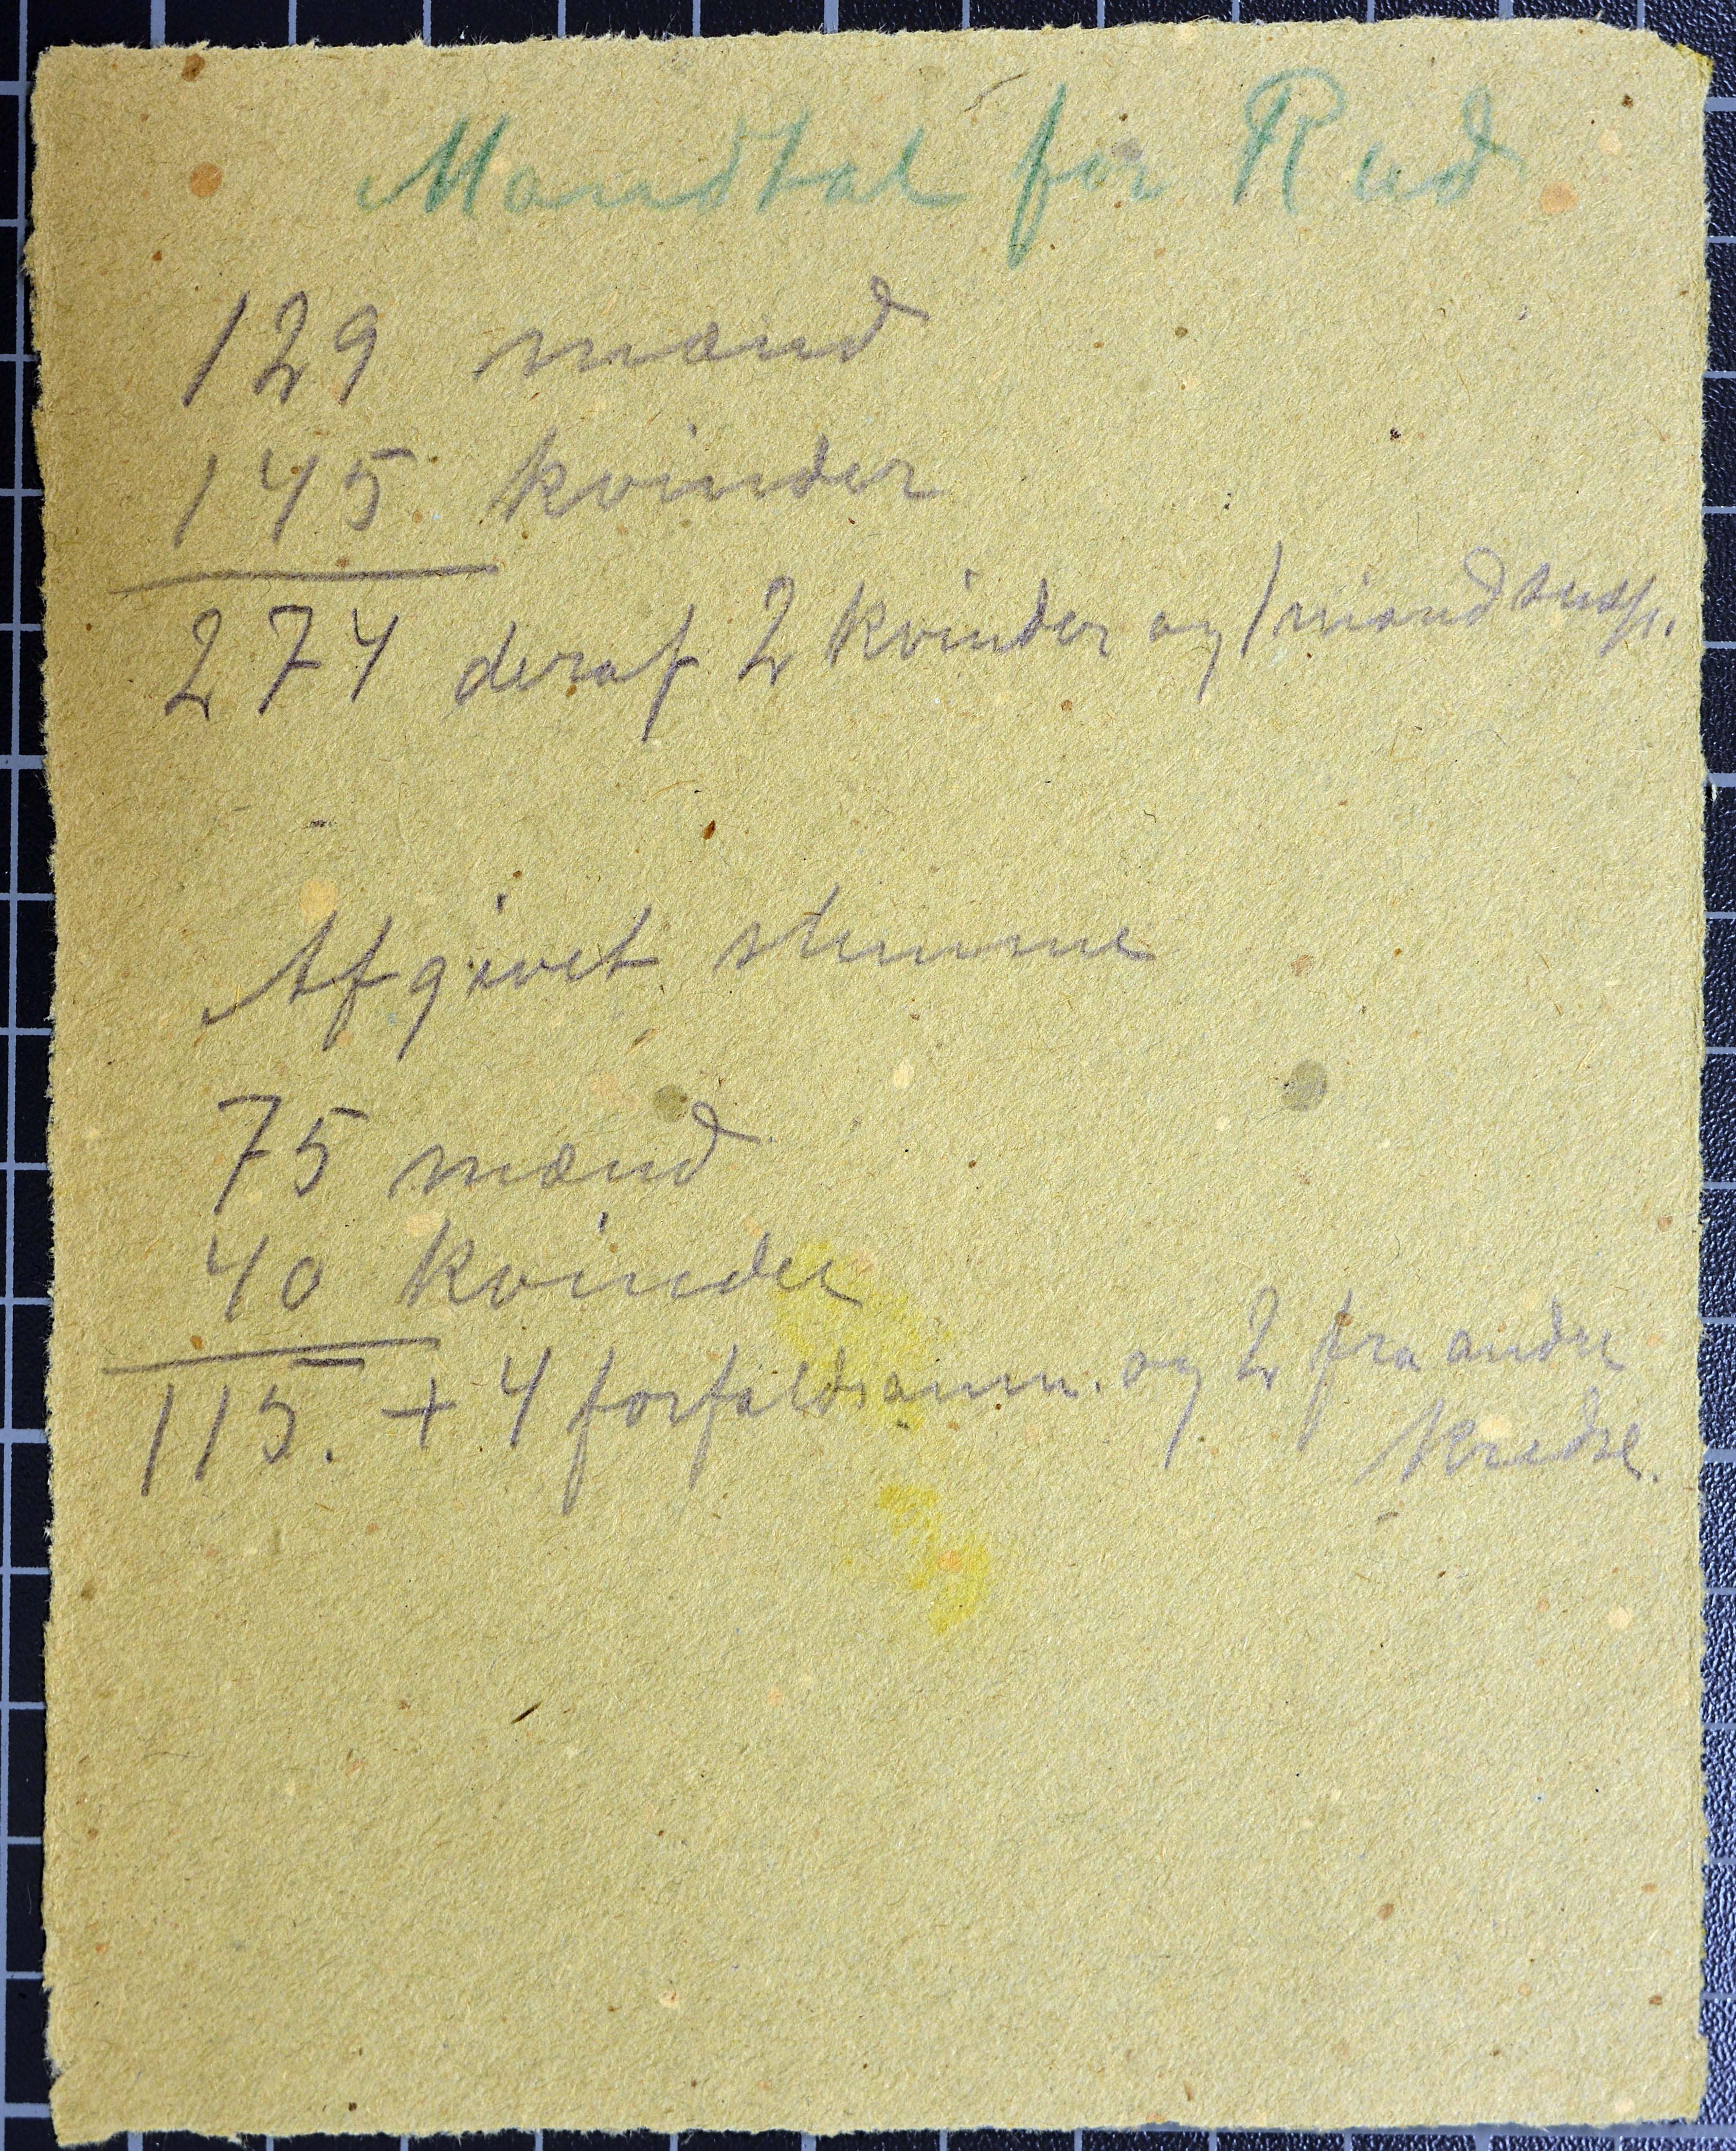 Mandtal for Rud
129 mænd
145 kvinder
274 deraf 2 kvinder og 1 mand susp.
Afgivet stemme
75 mænd
40 kvinder
115. + 4 forfaldsanm. og 2 fra andre
kredse.